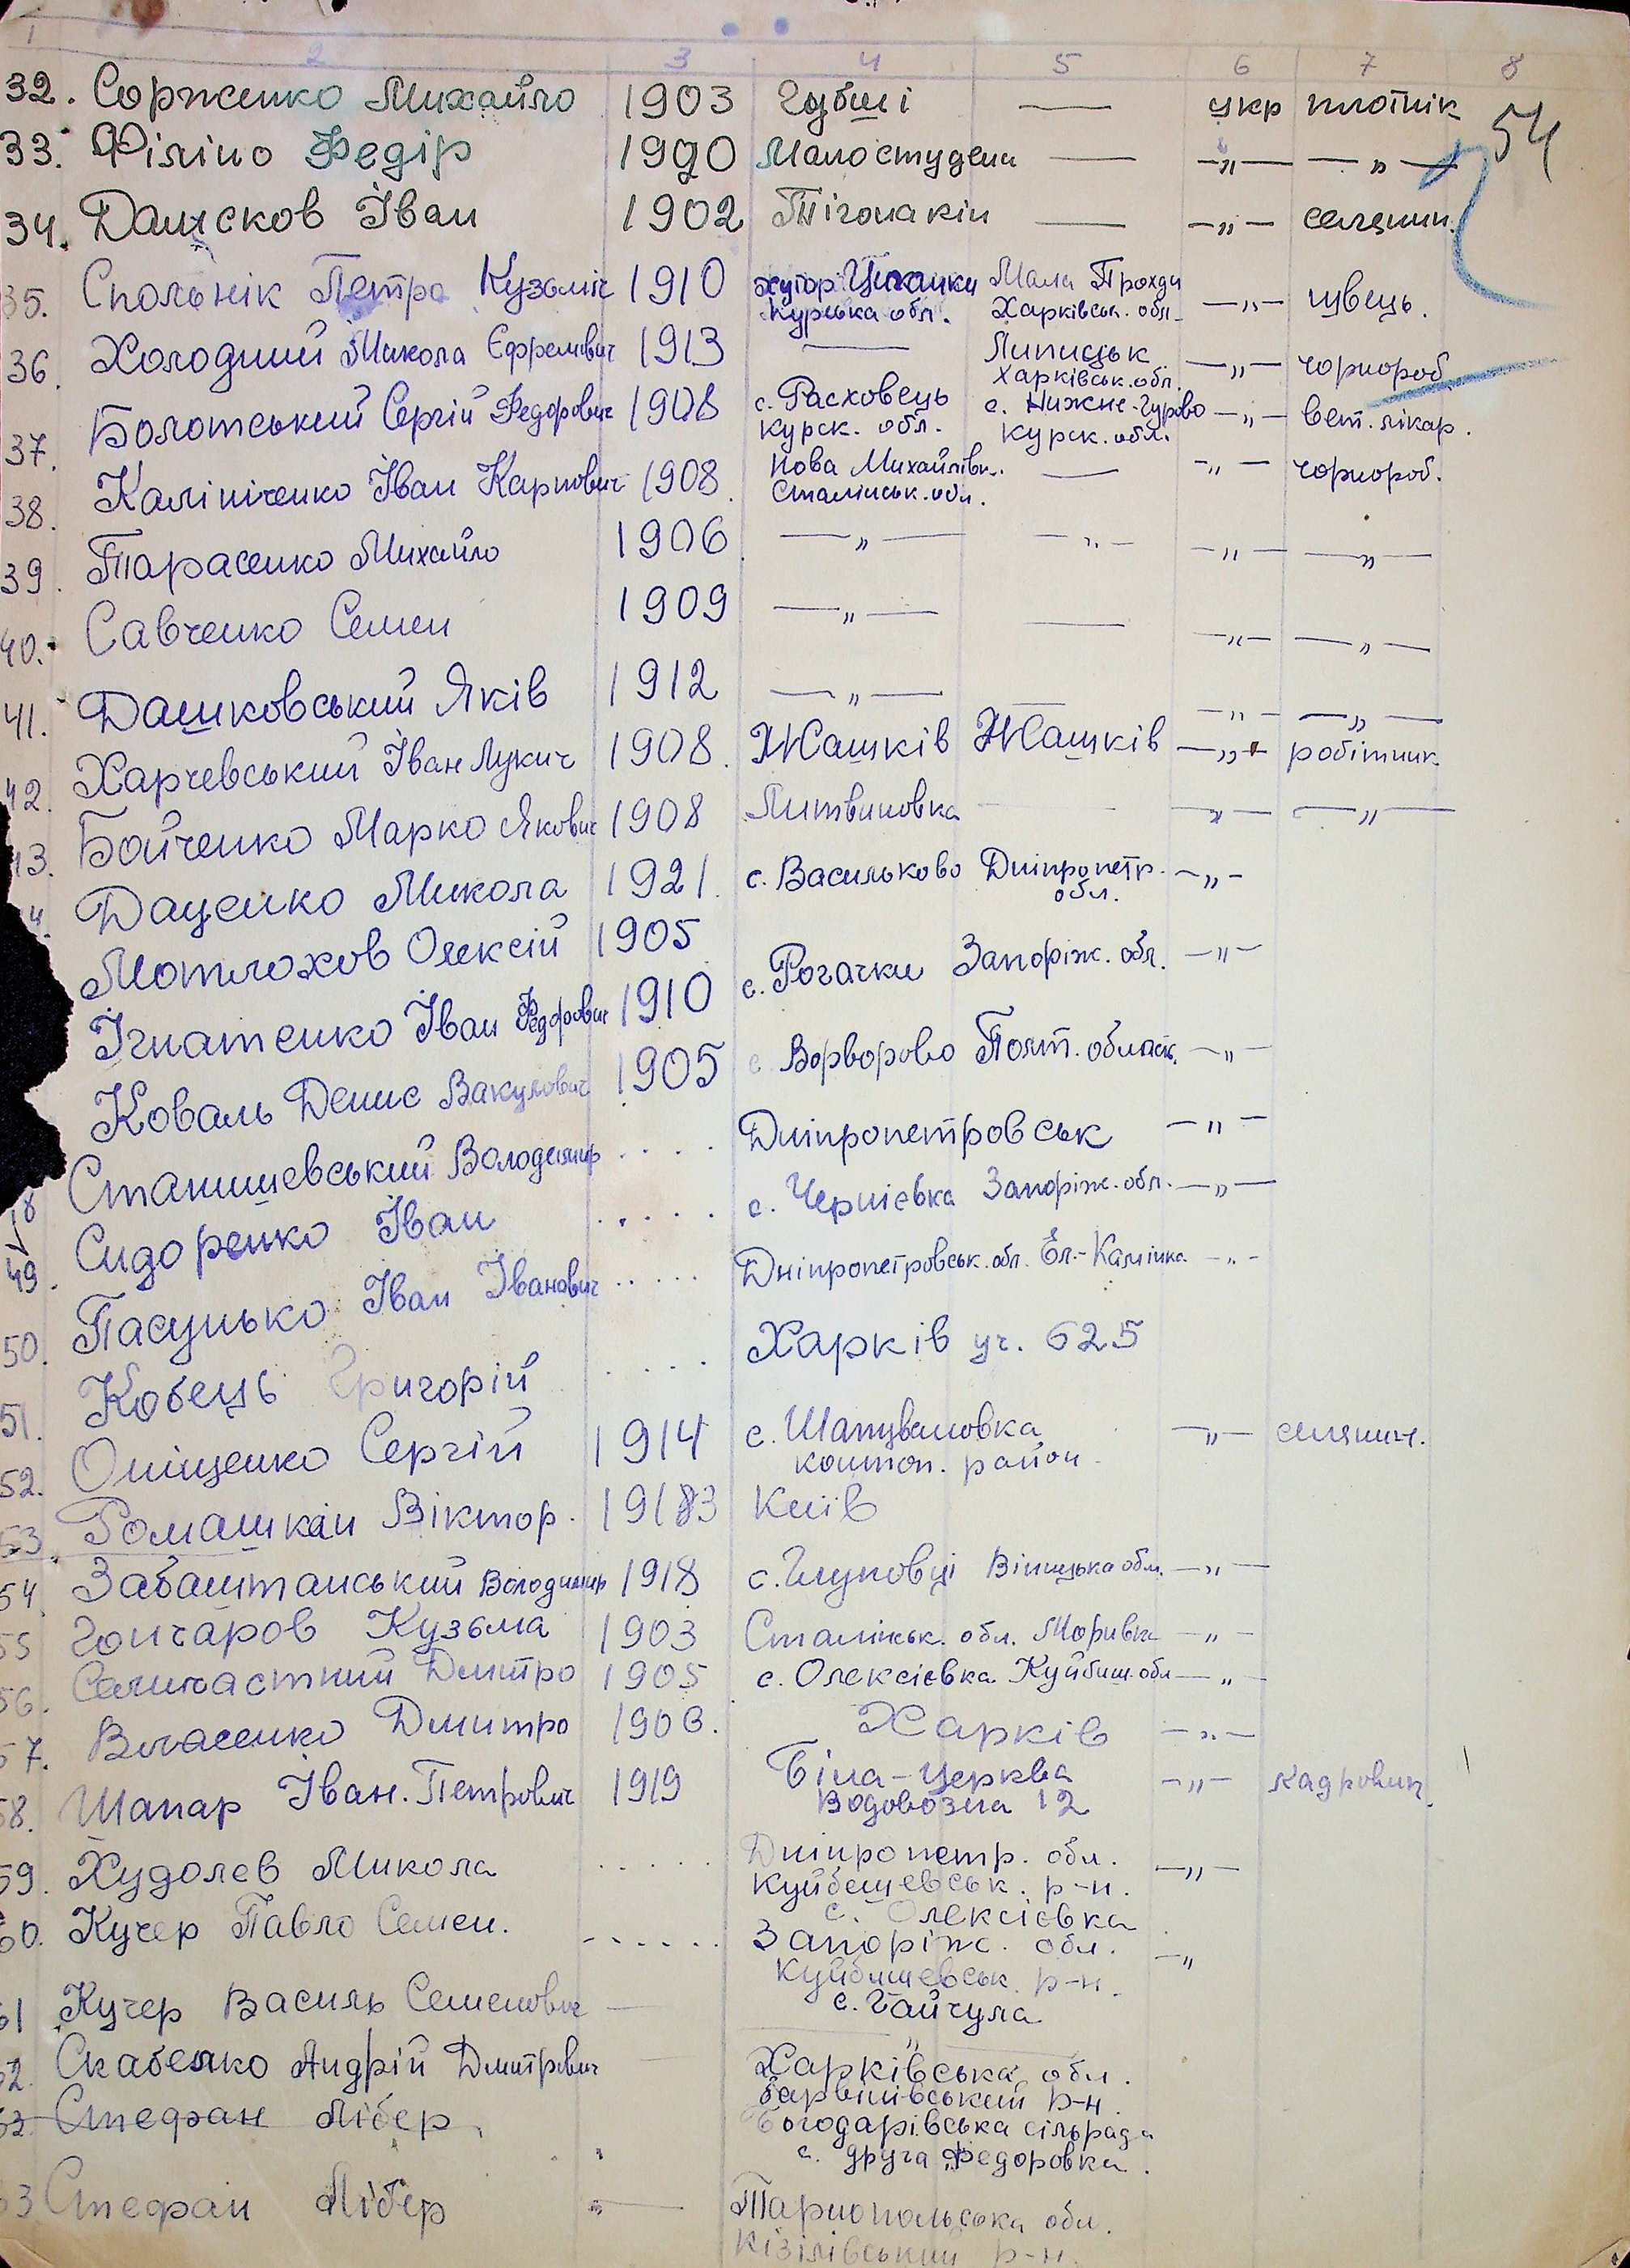 1 2 3 4 5 6 7 8
54
32. Сорженко Михайло 1903 Губші — укр плотнік
33. Філіпо Федір 1990 Малостудени — —„— —„—
34. Дансков Іван 1902 Тігонакін — —„— селянин.
35. Спольнік Петро Кузьміч 1910 хутор Цыканки Мала Проходи —„— швець.
Курська обл. Харківськ. обл.
36. Холодний Микола Єфремович 1913 — Липицьк —„— чорнороб
Харківськ. обл.
37. Болотський Сергій Федорович 1908 с. Расховець с. Нижнє-Гурово —„— вет. лікар.
Курск. обл. Курск. обл.
38. Калініченко Іван Карпович 1908. Нова Михайлівк. — —„— чорнороб.
Сталінськ. обл.
39. Тарасенко Михайло 1906 —„— —„— —„— —„—
40. Савченко Семен 1909 —„— — —„— —„—
41. Дашковський Яків 1912 —„— — —„— —„—
42. Харчевський Іван Лукич 1908. Жашків Жашків —„— робітник
43. Бойченко Марко Якович 1908 Литвиновка — —„— —„—
Даценко Микола 1921. с. Васильково Дніпропетр. —„—
обл.
Мотлохов Олексій 1905 с. Рогачки Запоріж. обл. —„—
Ігнатенко Іван Федорович 1910 с. Ворворово Полт. област. —„—
Коваль Денис Вакулович 1905 Дніпропетровськ —„—
48 Станишевський Володимир .... с. Чернієвка Запоріж. обл. —„—
49. Сидоренко Іван ..... Дніпропетровськ. обл. Ел.-Камінка —„—
50. Пасунько Іван Іванович ..... Харків уч. 625
51. Кобець Григорій ....
52. Оніщенко Сергій 1914 с. Шапуваловка —„— селянин.
контоп. район
53. Ромашкан Віктор. 19183 Київ
54. Забаштанський Володимир 1918 с. Глуховці Вінницька обл. —„—
55 Гончаров Кузьма 1903 Сталінськ. обл. Моривка —„—
56. Селичастний Дмитро 1905 с. Олексієвка Куйбиш. обл —„—
57. Власенко Дмитро 1906. Харків —„—
58. Шапар Іван. Петрович 1919 Біла-Церква —„— кадровик.
Водовозна 12
59. Худолєв Микола ..... Дніпропетр. обл. —„—
Куйбешевськ. р-н.
с. Олексієвка
60. Кучер Павло Семен. ...... Запоріж. обл. —„
Куйбишевськ. р-н.
с. Гайчула
61 Кучер Василь Семенович — —„—
62. Скабенко Андрій Дмитрович — Харківська обл.
Барвінівський р-н.
Богодарівська сільрада
с. друга Федоровка.
63 Стефан Лібер
63 Стефан Лібер — Тарнопольська обл.
Кізілівський р-н.